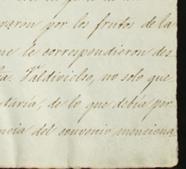 por los frutos de la
le correspondieron des
Valdivielso, no solo que
taria, de lo que debia por
ncia del convenio menciona